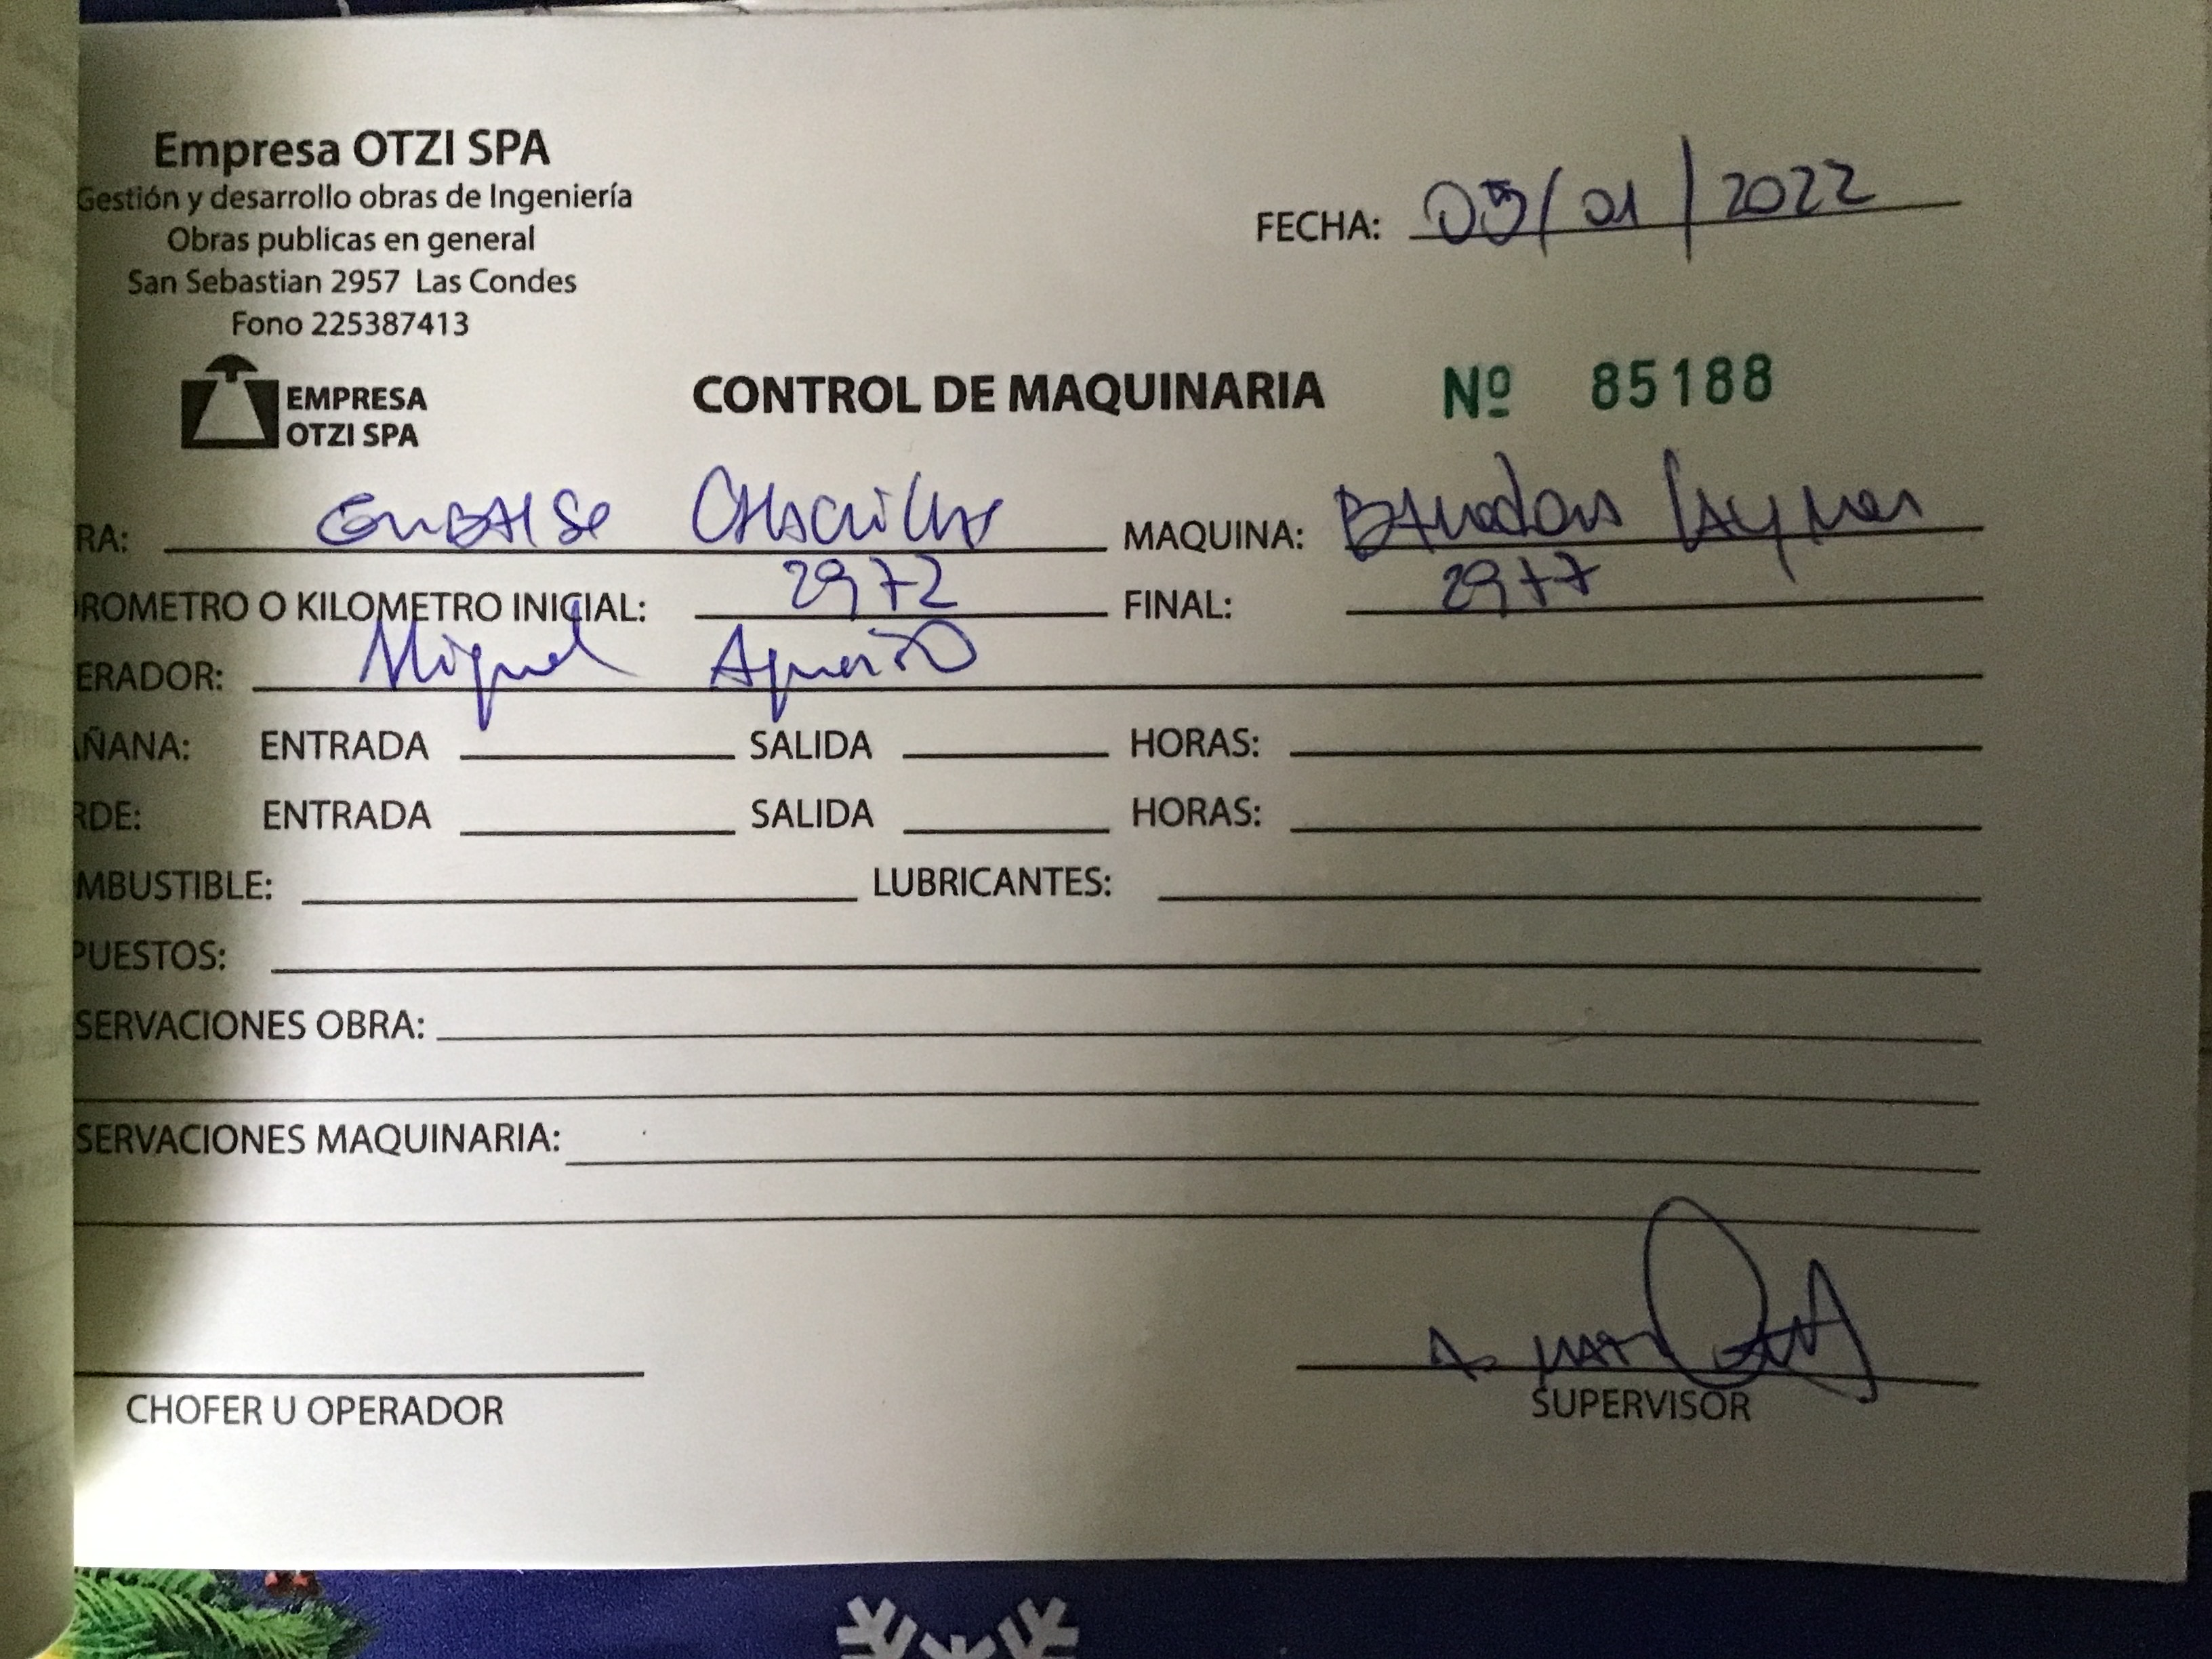 Empresa OTZI SPA
Gestión y desarrollo obras de Ingeniería
Obras publicas en general
San Sebastian 2957 Las Condes
Fono 225387413
FECHA: /01/2022
EMPRESA
OTZI SPA
CONTROL DE MAQUINARIA Nº 85188
RA: Embalse Chacrillas MAQUINA:
ROMETRO O KILOMETRO INICIAL: 2972 FINAL: 2977
ERADOR: Miguel
ÑANA: ENTRADA SALIDA HORAS:
RDE: ENTRADA SALIDA HORAS:
MBUSTIBLE: LUBRICANTES:
PUESTOS:
SERVACIONES OBRA:
SERVACIONES MAQUINARIA:
CHOFER U OPERADOR
SUPERVISOR